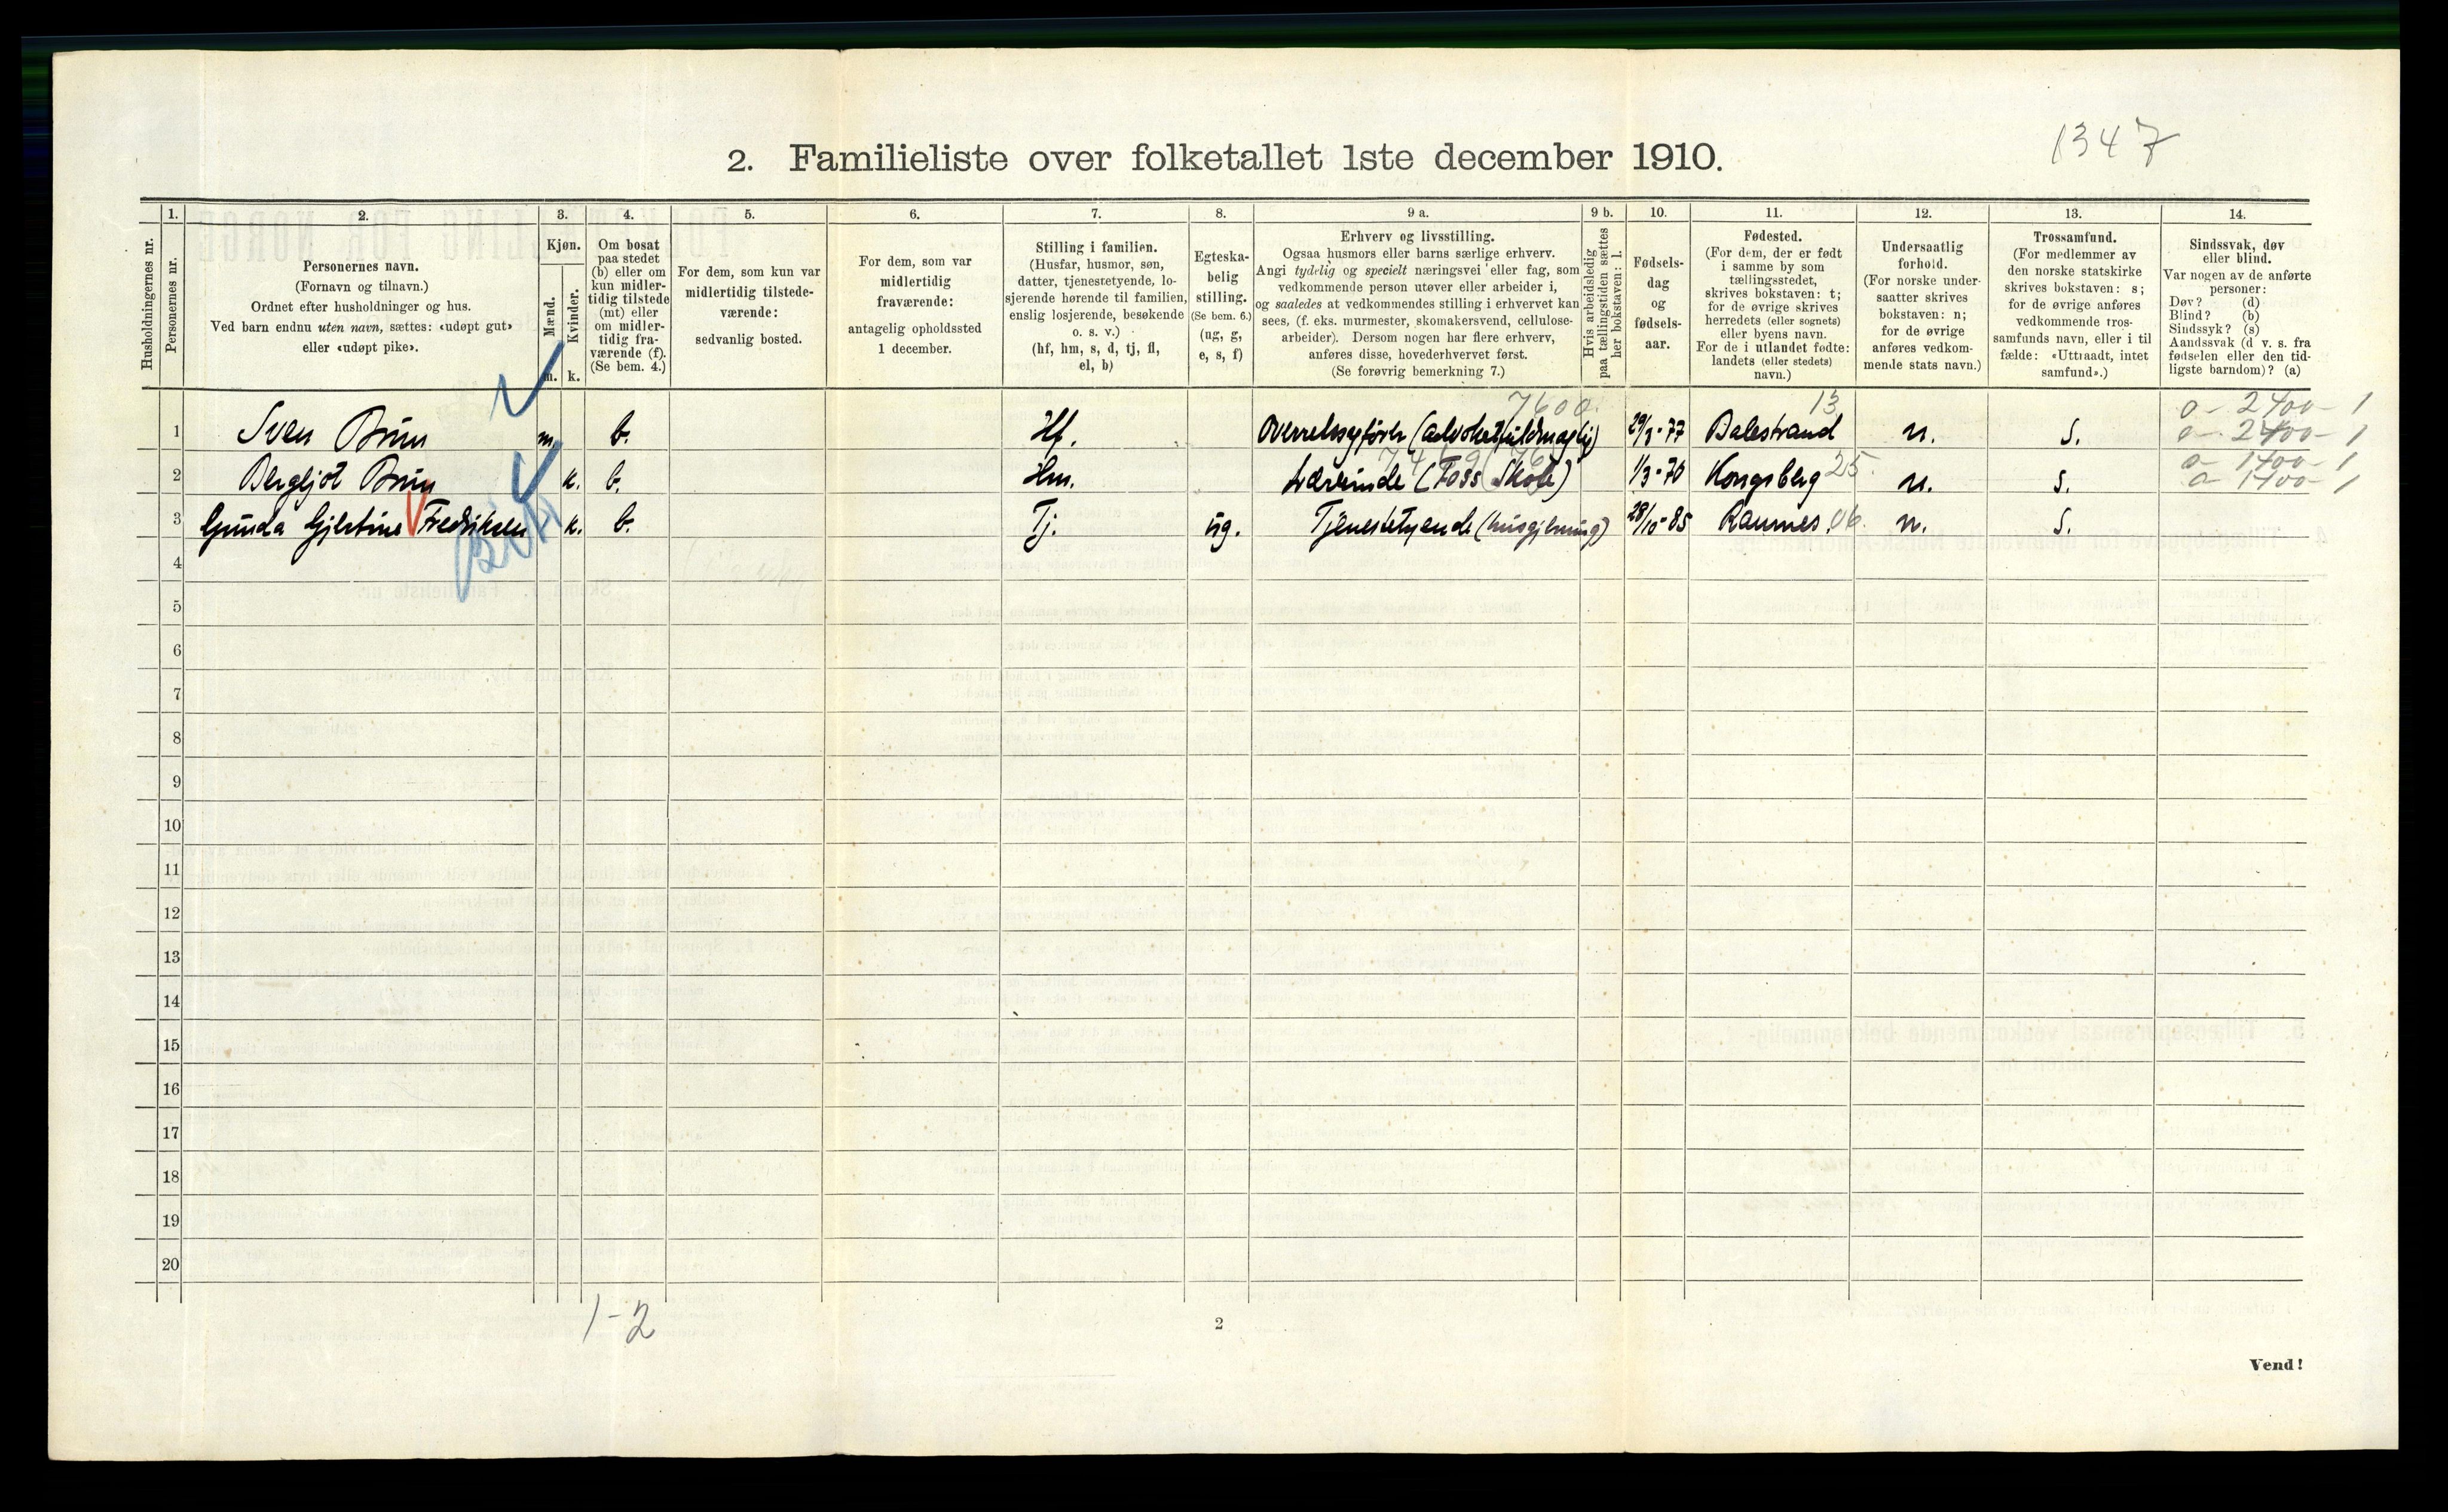 1347
2. Familieliste over folketallet 1ste december 1910.
Husholdningernes nr.
1. Personernes nr.
2. Personernes navn.
(Fornavn og tilnavn.)
Ordnet efter husholdninger og hus.
Ved barn endnu uten navn, sættes: «udøpt gut»
eller «udøpt pike».
3. Kjøn.
Mænd. m.
Kvinder. k.
4. Om bosat
paa stedet
(b) eller om
kun midler-
tidig tilstede
(mt) eller
om midler-
tidig fra-
værende (f).
(Se bem. 4.)
5. For dem, som kun var
midlertidig tilstede-
værende:
sedvanlig bosted.
6. For dem, som var
midlertidig
fraværende:
antagelig opholdssted
1 december.
7. Stilling i familien.
(Husfar, husmor, søn,
datter, tjenestetyende, lo-
sjerende hørende til familien,
enslig losjerende, besøkende
o. s. v.)
(hf, hm, s, d, tj, fl,
el, b)
8. Egteska-
belig
stilling.
(Se bem. 6.)
(ug, g,
e, s, f)
9 a. Erhverv og livsstilling.
Ogsaa husmors eller barns særlige erhverv.
Angi tydelig og specielt næringsvei eller fag, som
vedkommende person utøver eller arbeider i,
og saaledes at vedkommendes stilling i erhvervet kan
sees, (f. eks. murmester, skomakersvend, cellulose-
arbeider). Dersom nogen har flere erhverv,
anføres disse, hovederhvervet først.
(Se forøvrig bemerkning 7.)
9 b. Hvis arbeidsledig
paa tællingstiden sættes
her bokstaven: l.
10. Fødsels-
dag
og
fødsels-
aar.
11. Fødested.
(For dem, der er født
i samme by som
tællingsstedet,
skrives bokstaven: t;
for de øvrige skrives
herredets (eller sognets)
eller byens navn.
For de i utlandet fødte:
landets (eller stedets)
navn.)
12. Undersaatlig
forhold.
(For norske under-
saatter skrives
bokstaven: n;
for de øvrige
anføres vedkom-
mende stats navn.)
13. Trossamfund.
(For medlemmer av
den norske statskirke
skrives bokstaven: s;
for de øvrige anføres
vedkommende tros-
samfunds navn, eller i til
fælde: «Uttraadt, intet
samfund».)
14. Sindssvak, døv
eller blind.
Var nogen av de anførte
personer:
Døv? (d)
Blind? (b)
Sindssyk? (s)
Aandssvak (d v. s. fra
fødselen eller den tid-
ligste barndom)? (a)
7600. 13 o - 2400 - 1
1 Sven Brun m. b. Hf. Overretssagfører (advokatfuldmægtig) 29/3-77 Balestrand n. s. o - 2400 - 1
o - 1400 - 1
2 Bergljot Brun k. b. Hm. Lærerinde (Foss Skole) 1/3-70 Kongsberg 25. n. s. o - 1400 - 1
3 Gunda Gjertine Fredriksen k. b. Tj. ug. Tjenestetyende (husgjerning) 28/10-85 Raumnes. 06. n. s.
4
5
6
7
8
9
10
11
12
13
14
15
16
17
18
19
20
1-2
2
Vend!